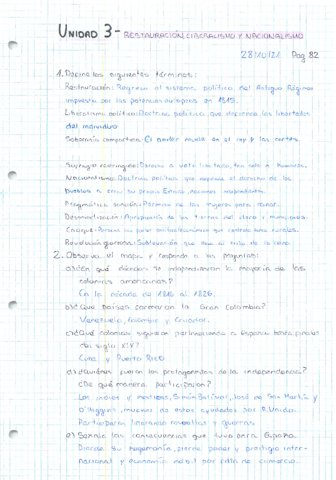 UNIDAD 3 - RESTAURACIÓN, LIBERALISMO Y NACIONALISMO
28/10/21 Pag 82
1. Define los siguientes términos:
Restauración: Regreso al sistema político del Antiguo Régimen
impuesto por las potencias europeas en 1815.
Liberalismo político: Doctrina política que defiende las libertades
del individuo
Soberanía compartida: El poder reside en el rey y las cortes.
Sufragio restringido: Derecho a voto limitado, tan solo a hombres.
Nacionalismo: Doctrina política que defiende el derecho de los
pueblos a crear su propio Estado
Pragmática sanción: Permiso de las mujeres para reinar.
Desamortización: Apropiación de las tierras del clero y municipios.
Cacique: Persona con poder que controla zonas rurales.
Revolución gloriosa: Sublevación que
2. Observa el mapa y responde a las preguntas:
a) ¿En qué décadas se independizaron la mayoría de las
colonias americanas?
En la década de 1816 al 1826.
b) ¿Qué países formaron la Gran Colombia?
Venezuela, Colombia y Ecuador.
c) ¿Qué colonias siguieron perteneciendo a España hasta finales
del siglo XIX?
Cuba y Puerto Rico
d) ¿Quiénes fueron los protagonistas de la independencia?
¿De qué manera participaron?
Los indios y mestizos, Simón Bolívar, José de San Martín y
O'Higgins, muchos de estos ayudados por R.Unido.
Participaron liderando revueltas y guerras
e) Señala las consecuencias que tuvo para España.
Pierde su hegemonía, pierde poder y prestigio inter-
nacional y economía débil por falta de comercio.